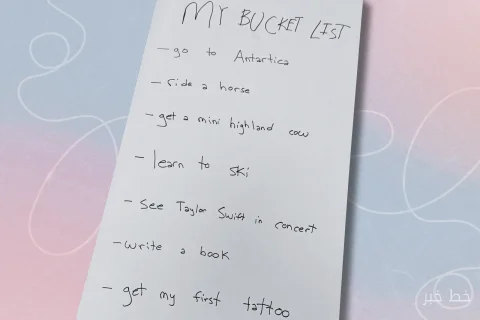 MY BUCKET LIST
- go to Antartica
- ride a horse
- get a mini highland cow
- learn to ski
- see Taylor Swift in concert
- write a book
- get my first tattoo
خط خبر